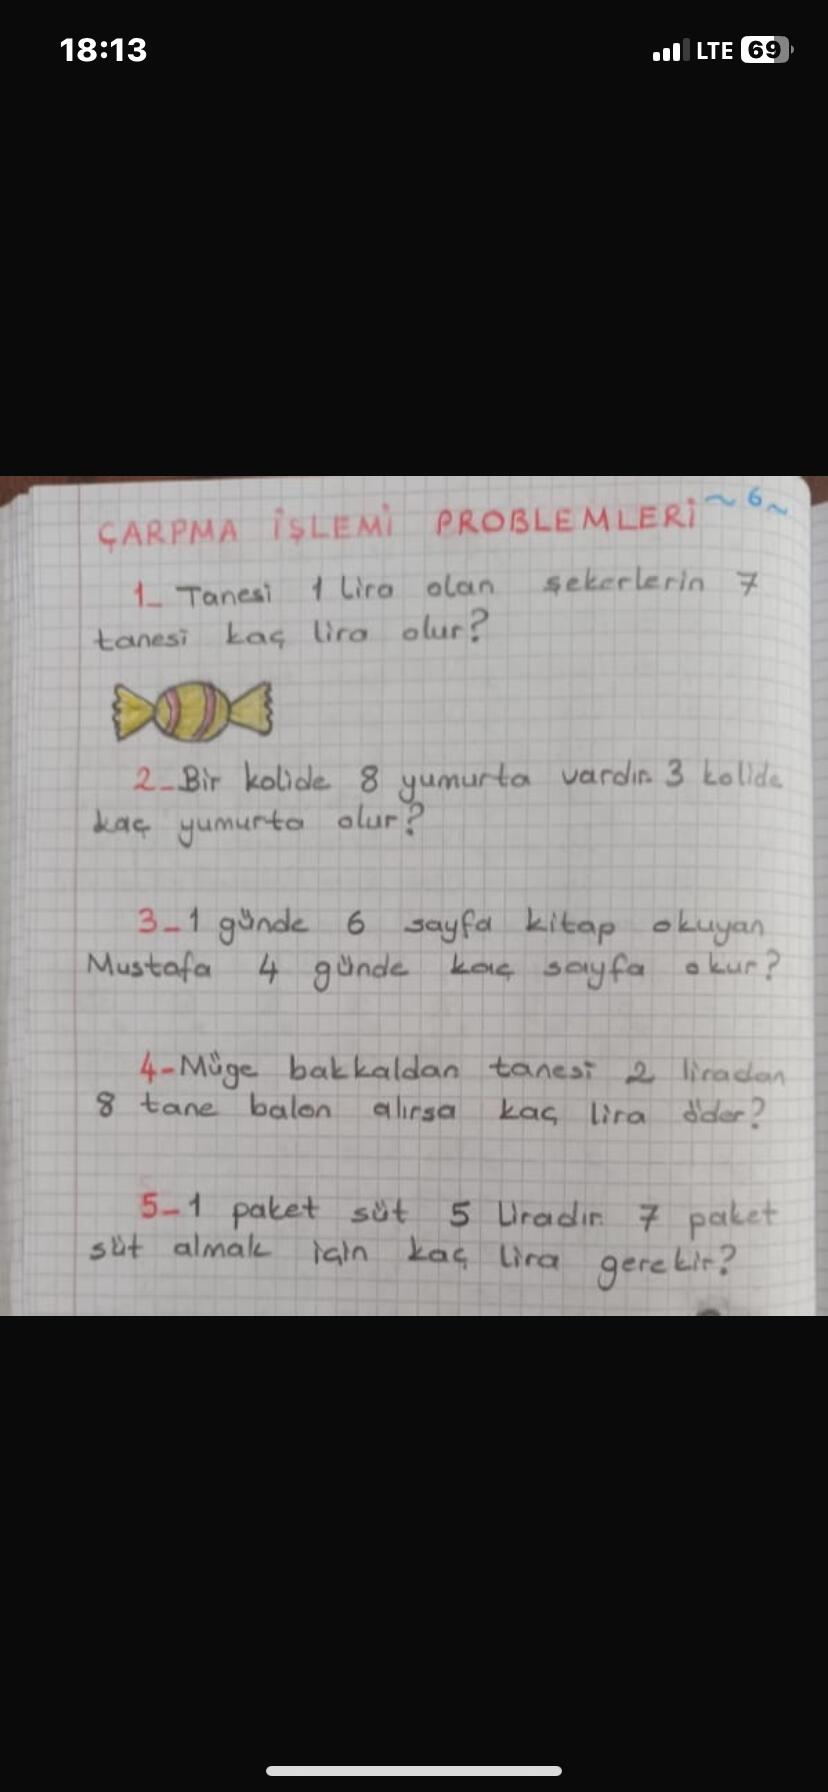 18:13 LTE 69
ÇARPMA İŞLEMİ PROBLEMLERİ ~6~
1_ Tanesi 1 lira olan şekerlerin 7
tanesi kaç lira olur?
2_Bir kolide 8 yumurta vardır. 3 kolide
kaç yumurta olur?
3_1 günde 6 sayfa kitap okuyan
Mustafa 4 günde kaç sayfa okur?
4-Müge bakkaldan tanesi 2 liradan
8 tane balon alırsa kaç lira öder?
5_1 paket süt 5 liradır. 7 paket
süt almak için kaç lira gerekir?